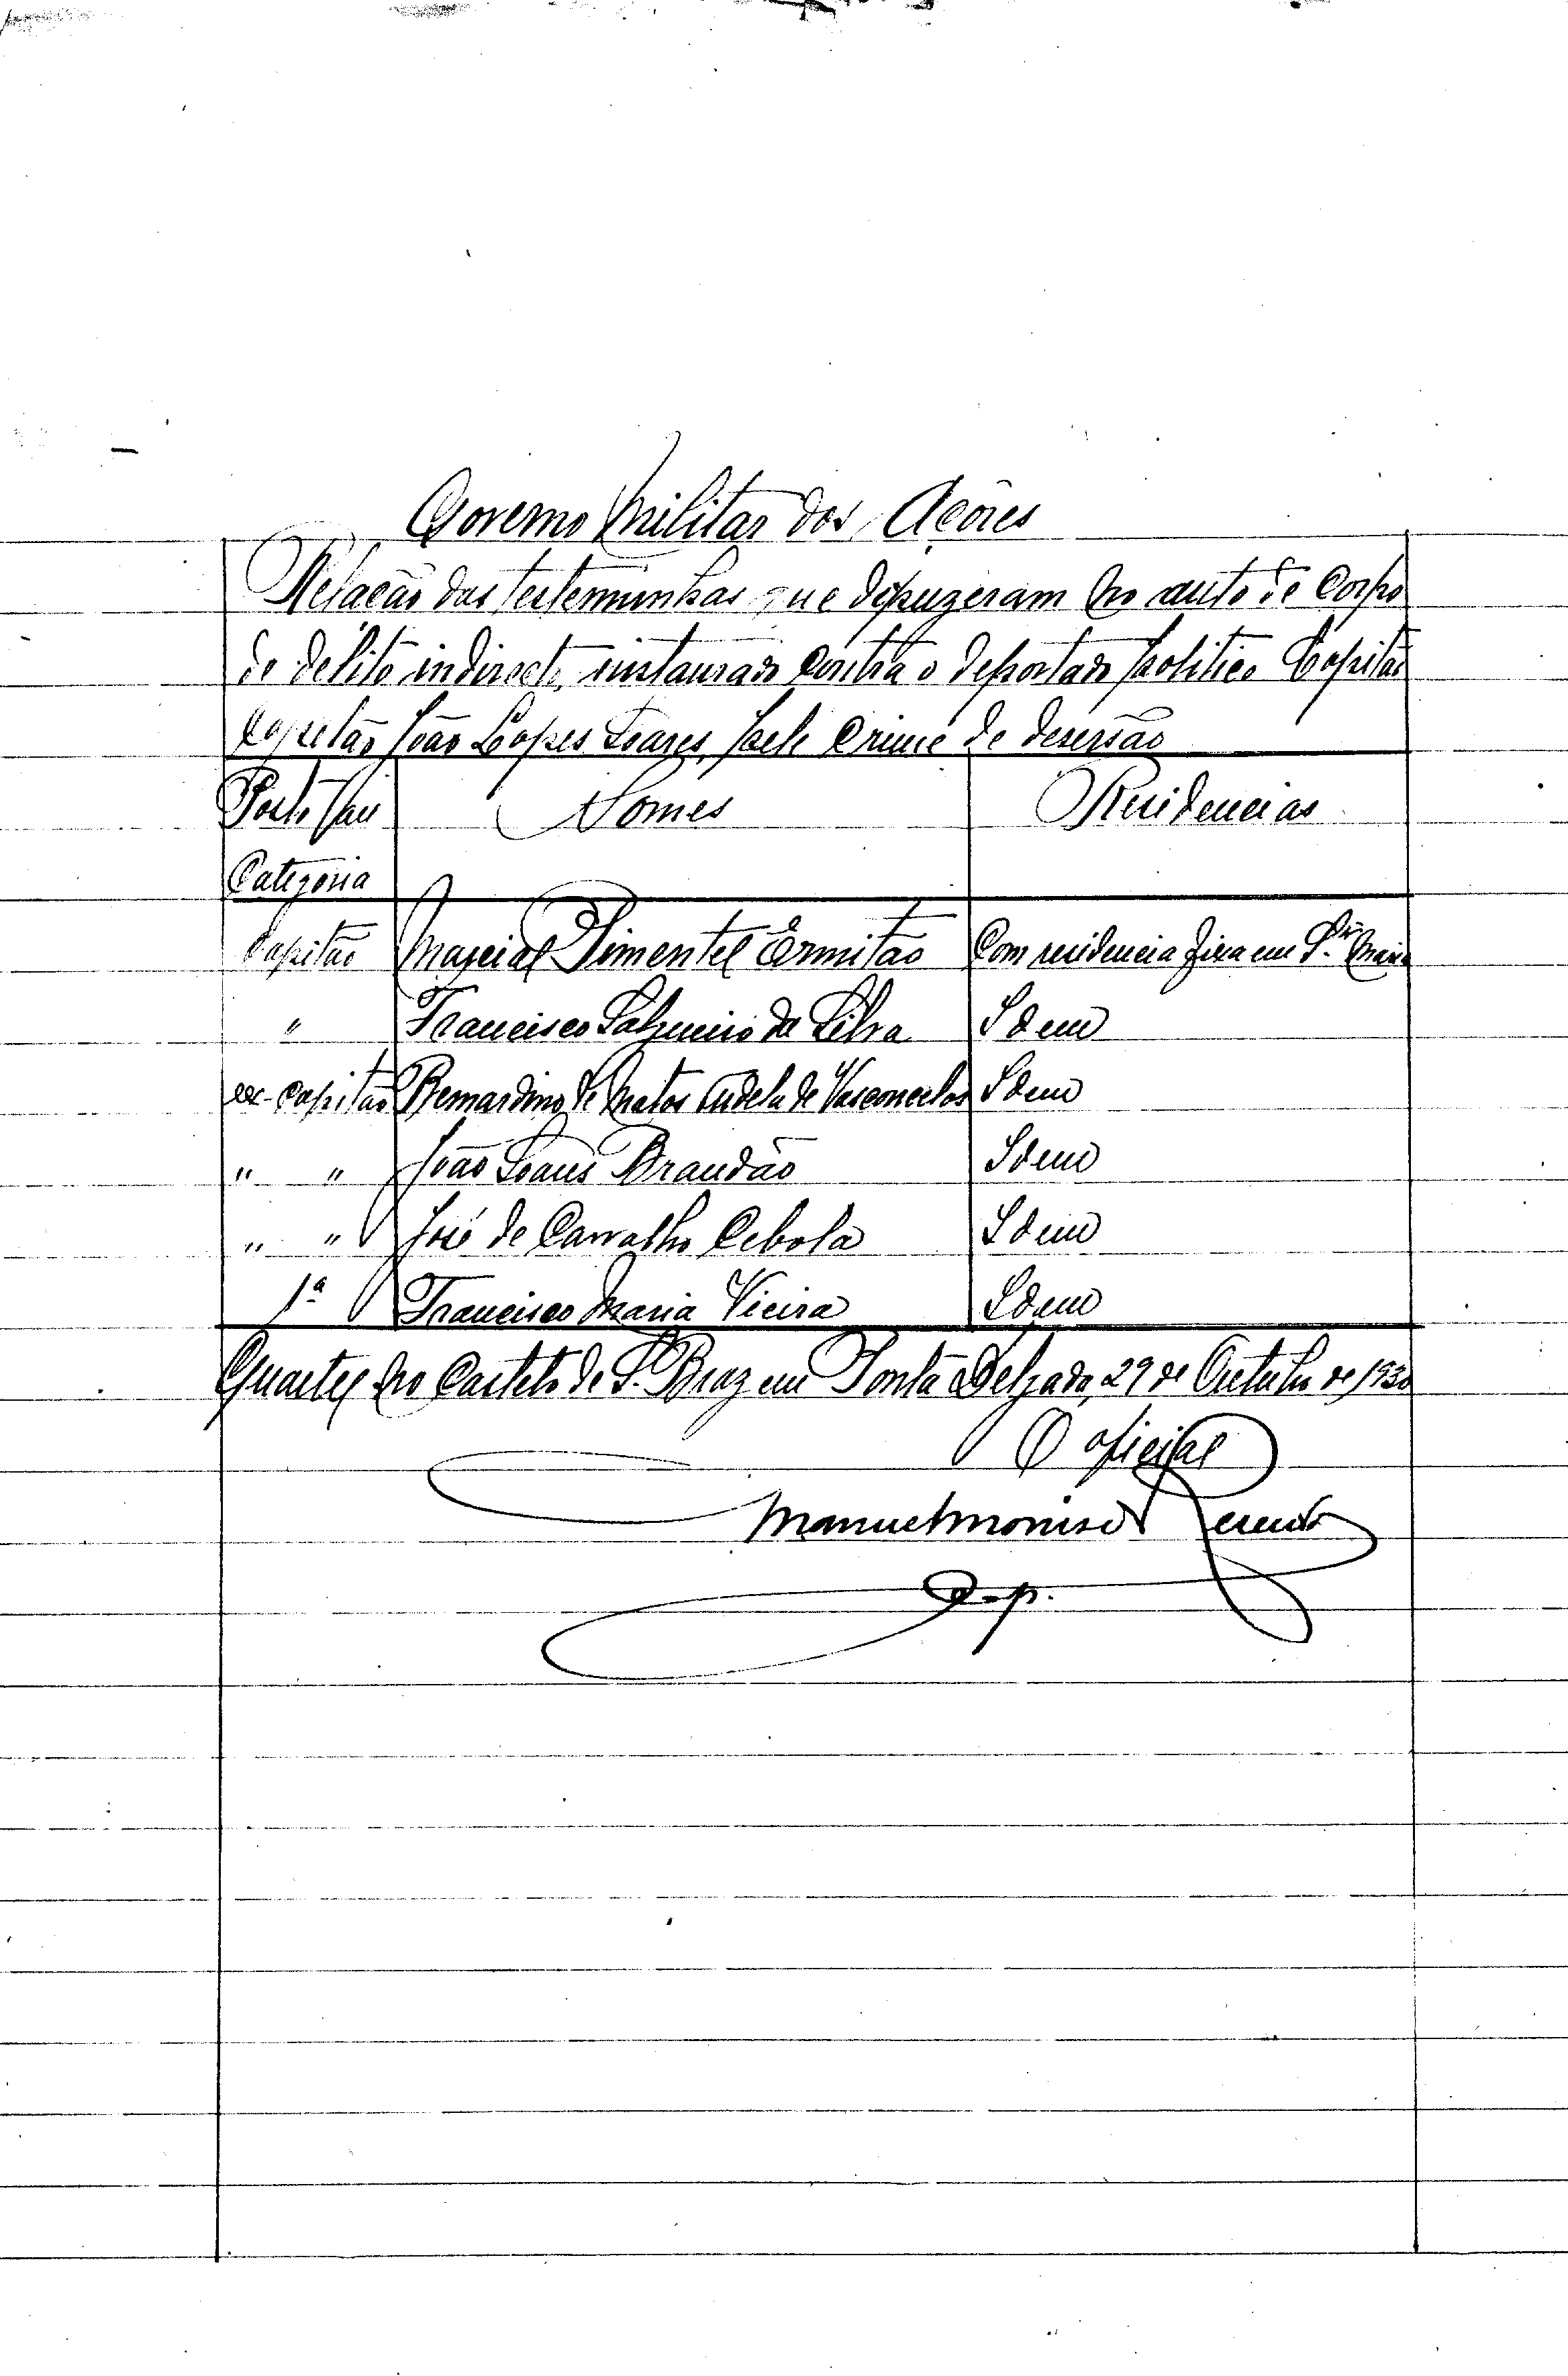 Governo Militar dos Açores
Relação das testemunhas que depuzeram no auto de Corpo
de delito indirecto, instaurado contra o deportado politico Capitão
Capitão João Lopes Soares, pelo Crime de deserção
Posto ou Nomes Residencias
Categoria
Capitão Marcial Pimentel Ermitão Com residencia fixa em Stª Maria
" Francisco Salgueiro da Silva Idem
ex-capitão Bernardino de Matos de Vasconcelos Idem
" " João Soares Brandão Idem
" " José de Carvalho Cebola Idem
1ª Francisco Maria Vieira Idem
Quartel no Castelo de S. Braz em Ponta Delgada, 29 de Outubro de 1930
O oficial
Manuel Moniz